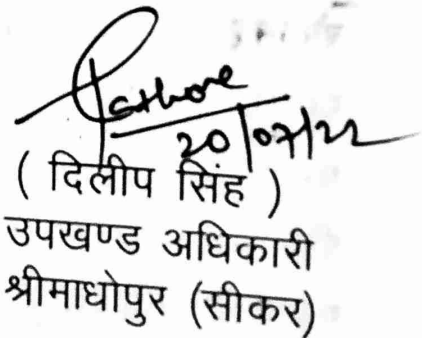 Rathore
20/07/22
( दिलीप सिंह )
उपखण्ड अधिकारी
श्रीमाधोपुर (सीकर)